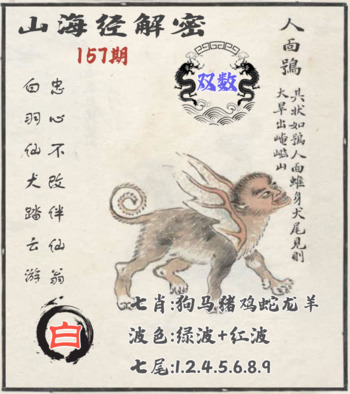 山海经解密
157期
双数
人面鴞
其状如鴞人面蜼身犬尾见则
大旱出崦嵫山
忠心不改伴仙翁
白羽仙犬踏云游
七肖:狗马猪鸡蛇龙羊
波色:绿波+红波
白
七尾:1.2.4.5.6.8.9